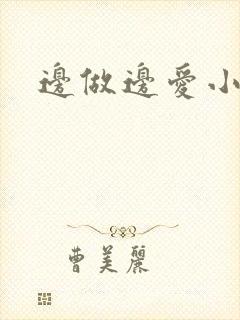 邊做邊愛小
曹美麗